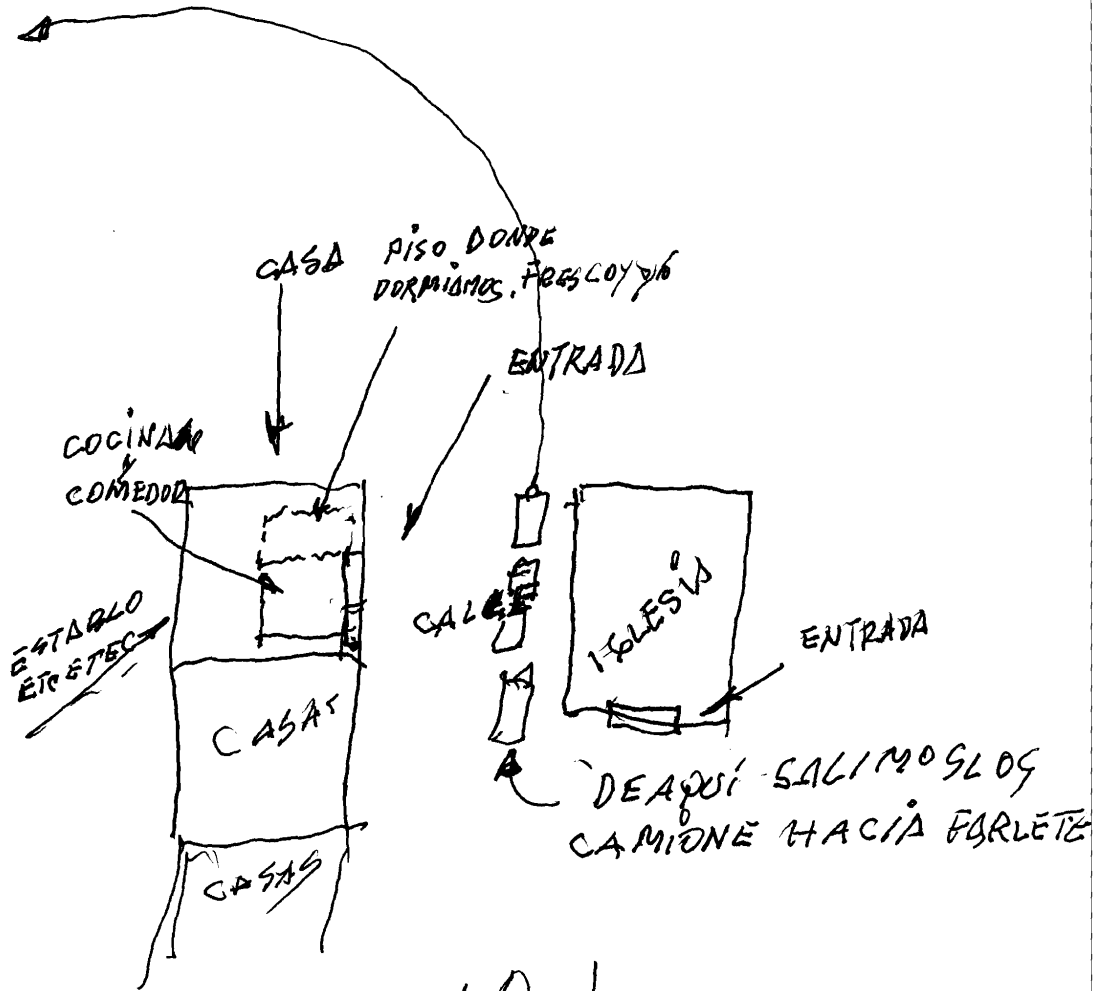 CASA
PISO DONDE
DORMIAMOS. FRESCO Y YO
ENTRADA
COCINA
Y
COMEDOR
ESTABLO
ETCETEC
CALLE
IGLESIA
ENTRADA
CASAS
CASAS
DEAQUÍ SALIMOSLOS
CAMIONE HACIA FARLETE